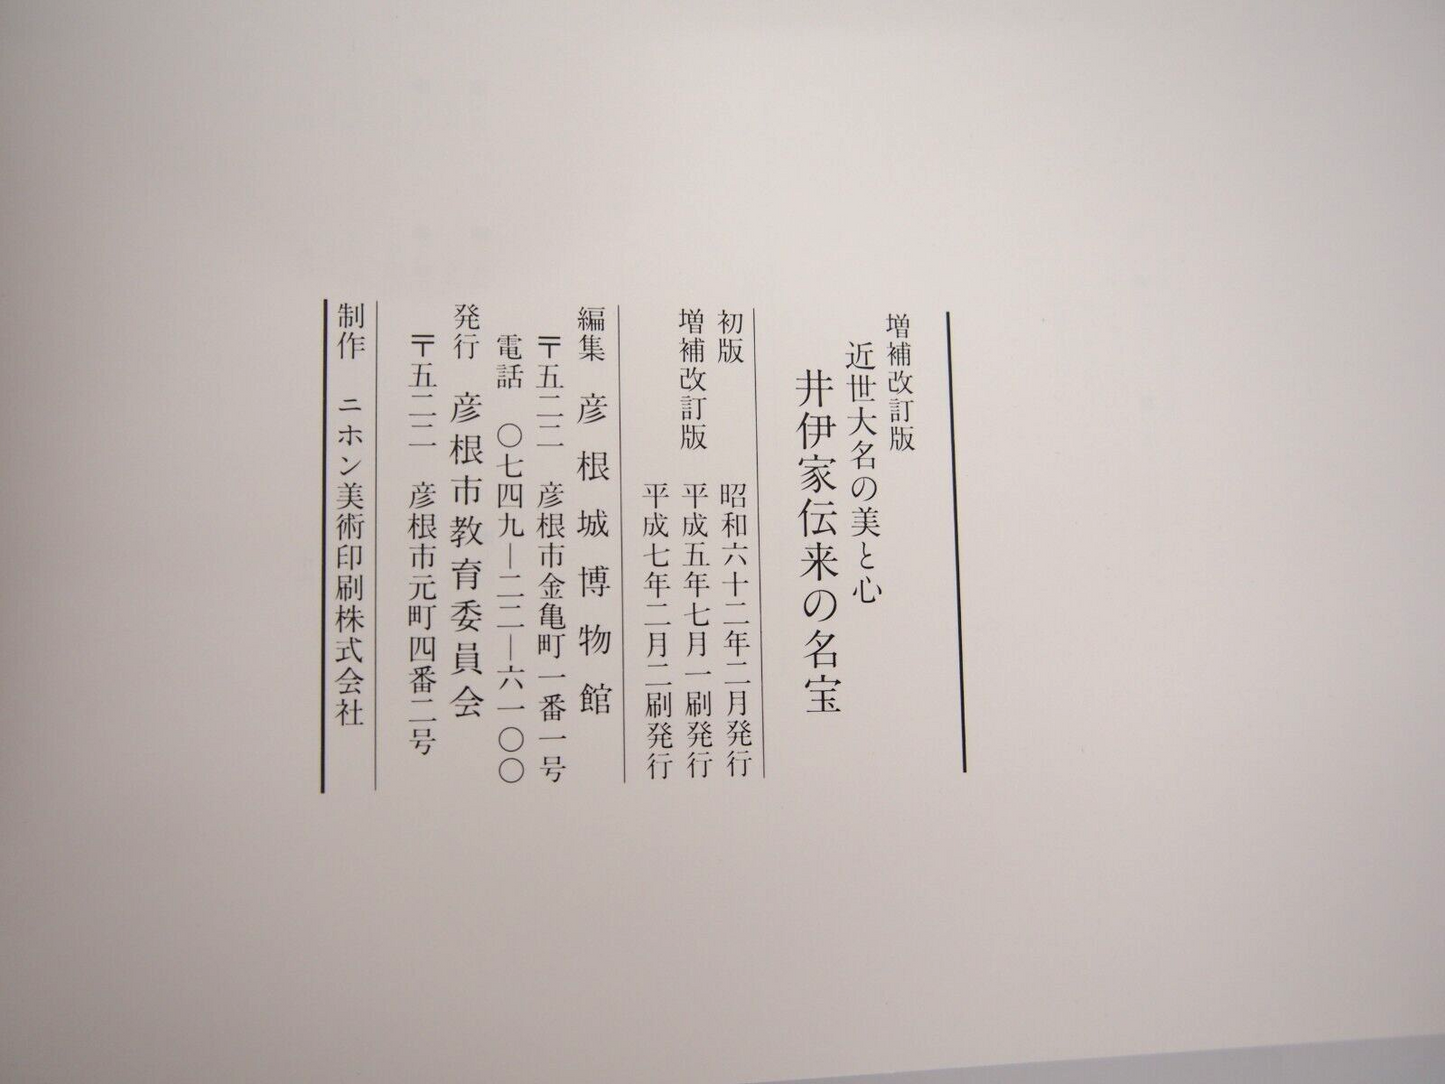 増補改訂版
近世大名の美と心
井伊家伝来の名宝
初版 昭和六十二年二月発行
増補改訂版 平成五年七月一刷発行
平成七年二月二刷発行
編集 彦根城博物館
〒五二二 彦根市金亀町一番一号
電話 〇七四九―二二―六一〇〇
発行 彦根市教育委員会
〒五二二 彦根市元町四番二号
制作 ニホン美術印刷株式会社